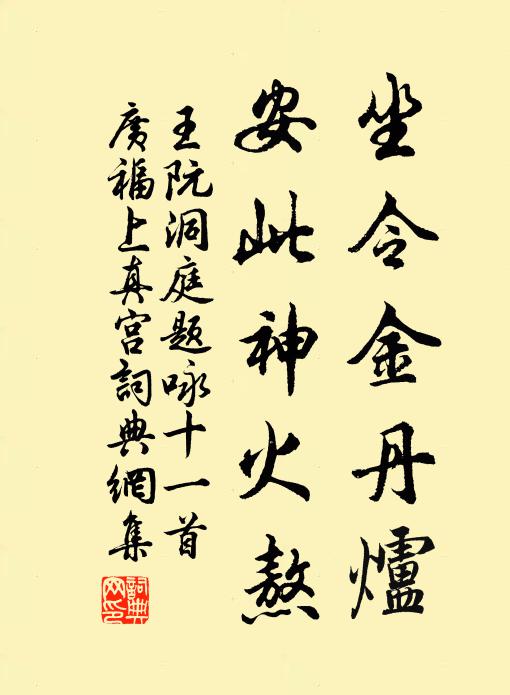 坐令金丹爐
安此神火熬
王阮洞庭題咏十一首
廣福上真宮詞典網集
詞典網印